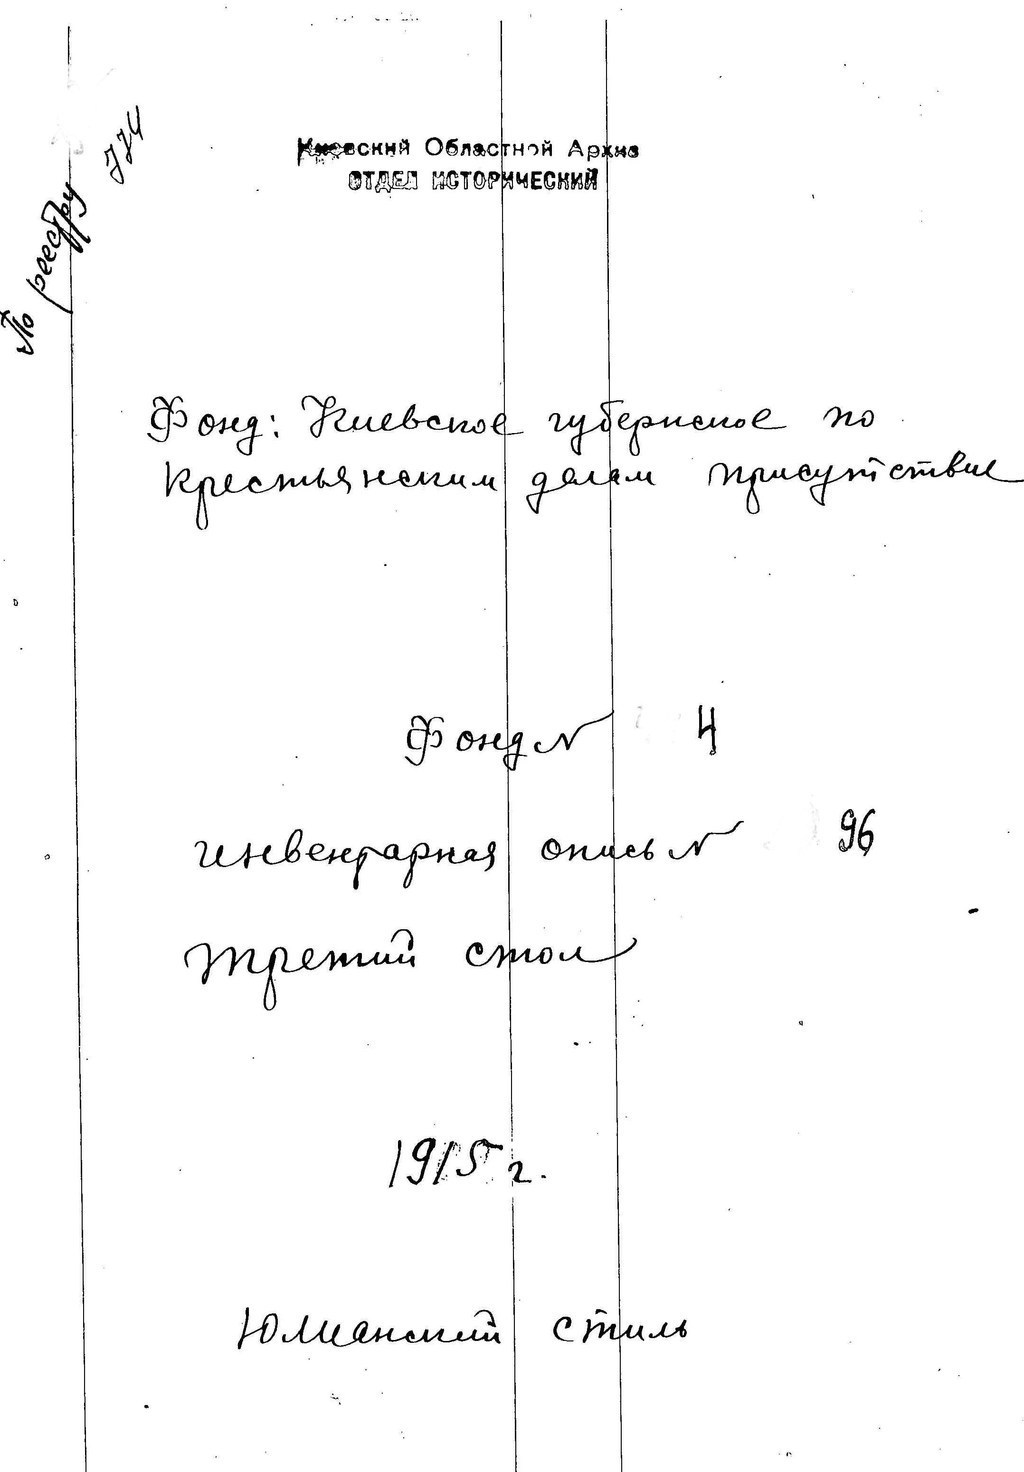 По реестру 724
Киевский Областной Архив
ОТДЕЛ ИСТОРИЧЕСКИЙ
Фонд: Киевское губернское по
крестьянским делам присутствие
Фонд № 4
инвентарная опись № 96
третий стол
1915 г.
Юлианский стиль